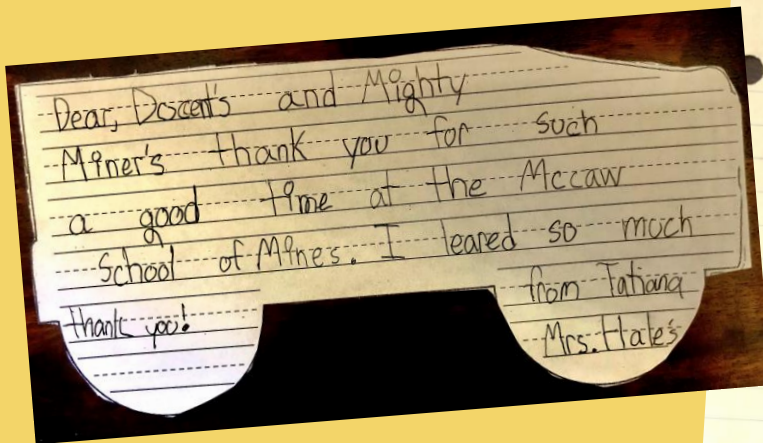 Dear, Docent's and Mighty
Miner's thank you for such
a good time at the Mccaw
School of Mines. I leared so much
from Tatiana
thank you!
Mrs. Hale's